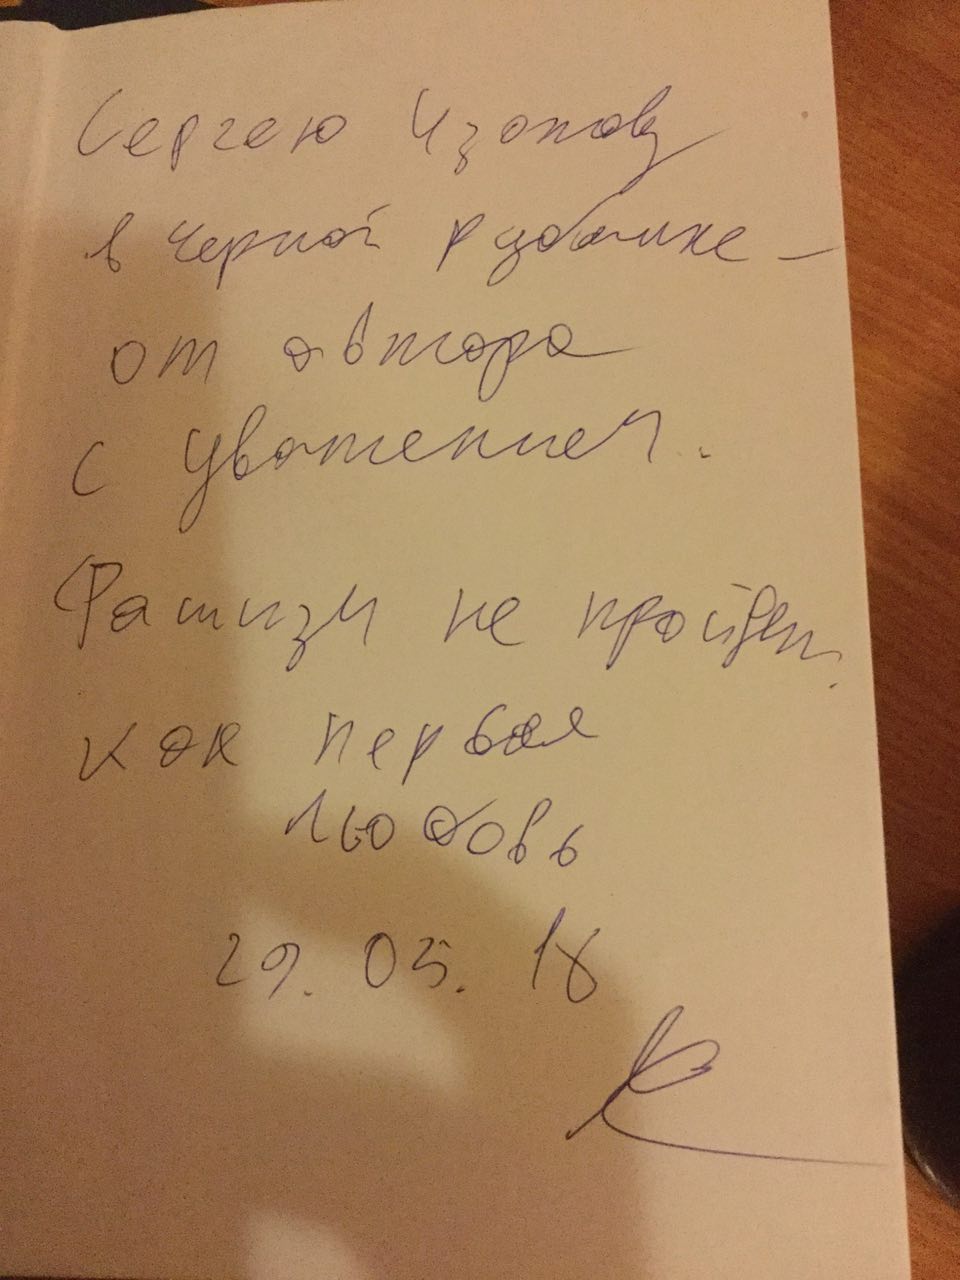 Сергею
в черной рубашке –
от автора
с уважением.
Фашизм не пройдет.
как первая
любовь
29. 05. 18